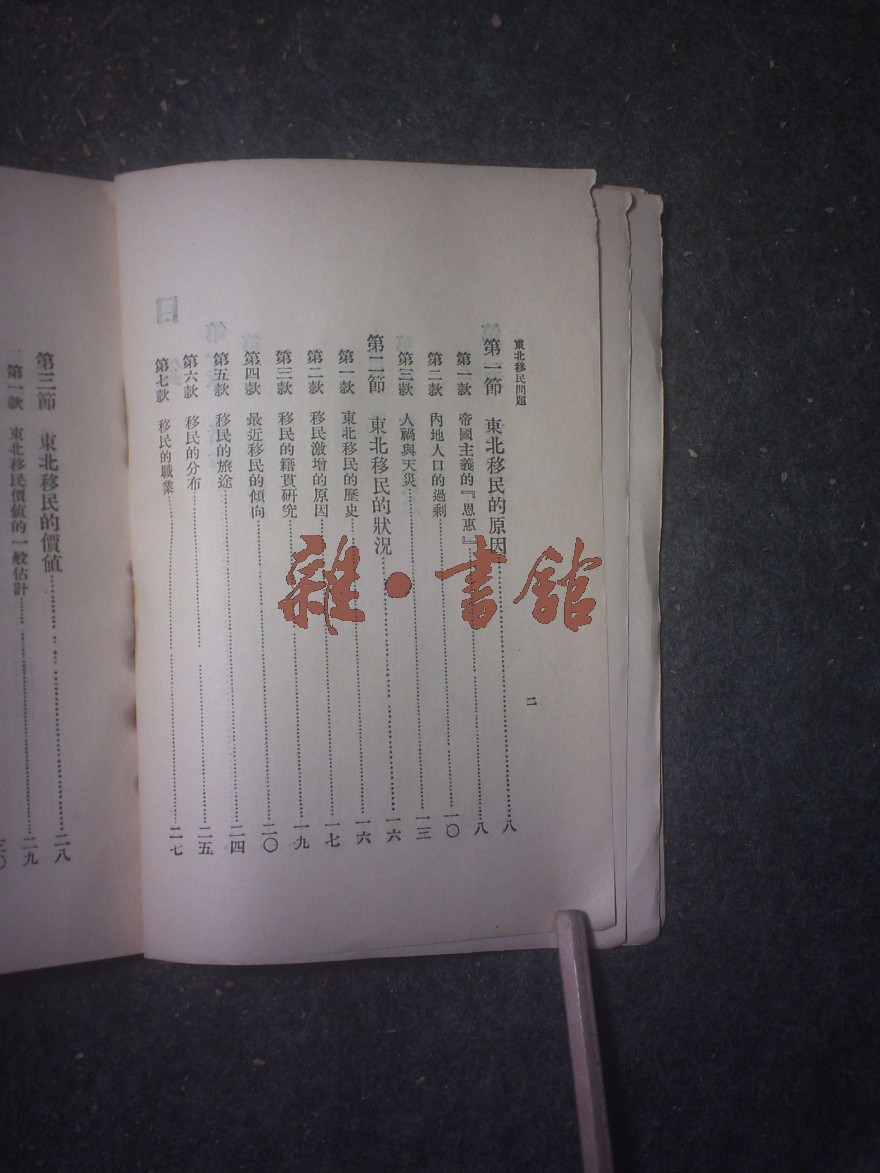 東北移民問題
二
第一節 東北移民的原因……八
第一款 帝國主義的『恩惠』……八
第二款 內地人口的過剩……一〇
第三款 人禍與天災……一三
第二節 東北移民的狀況……一六
第一款 東北移民的歷史……一六
第二款 移民激增的原因……一七
第三款 移民的籍貫研究……一九
第四款 最近移民的傾向……二〇
第五款 移民的旅途……二四
第六款 移民的分布……二五
第七款 移民的職業……二七
第三節 東北移民的價值……二八
第一款 東北移民價值的一般估計……二九
雜·書館